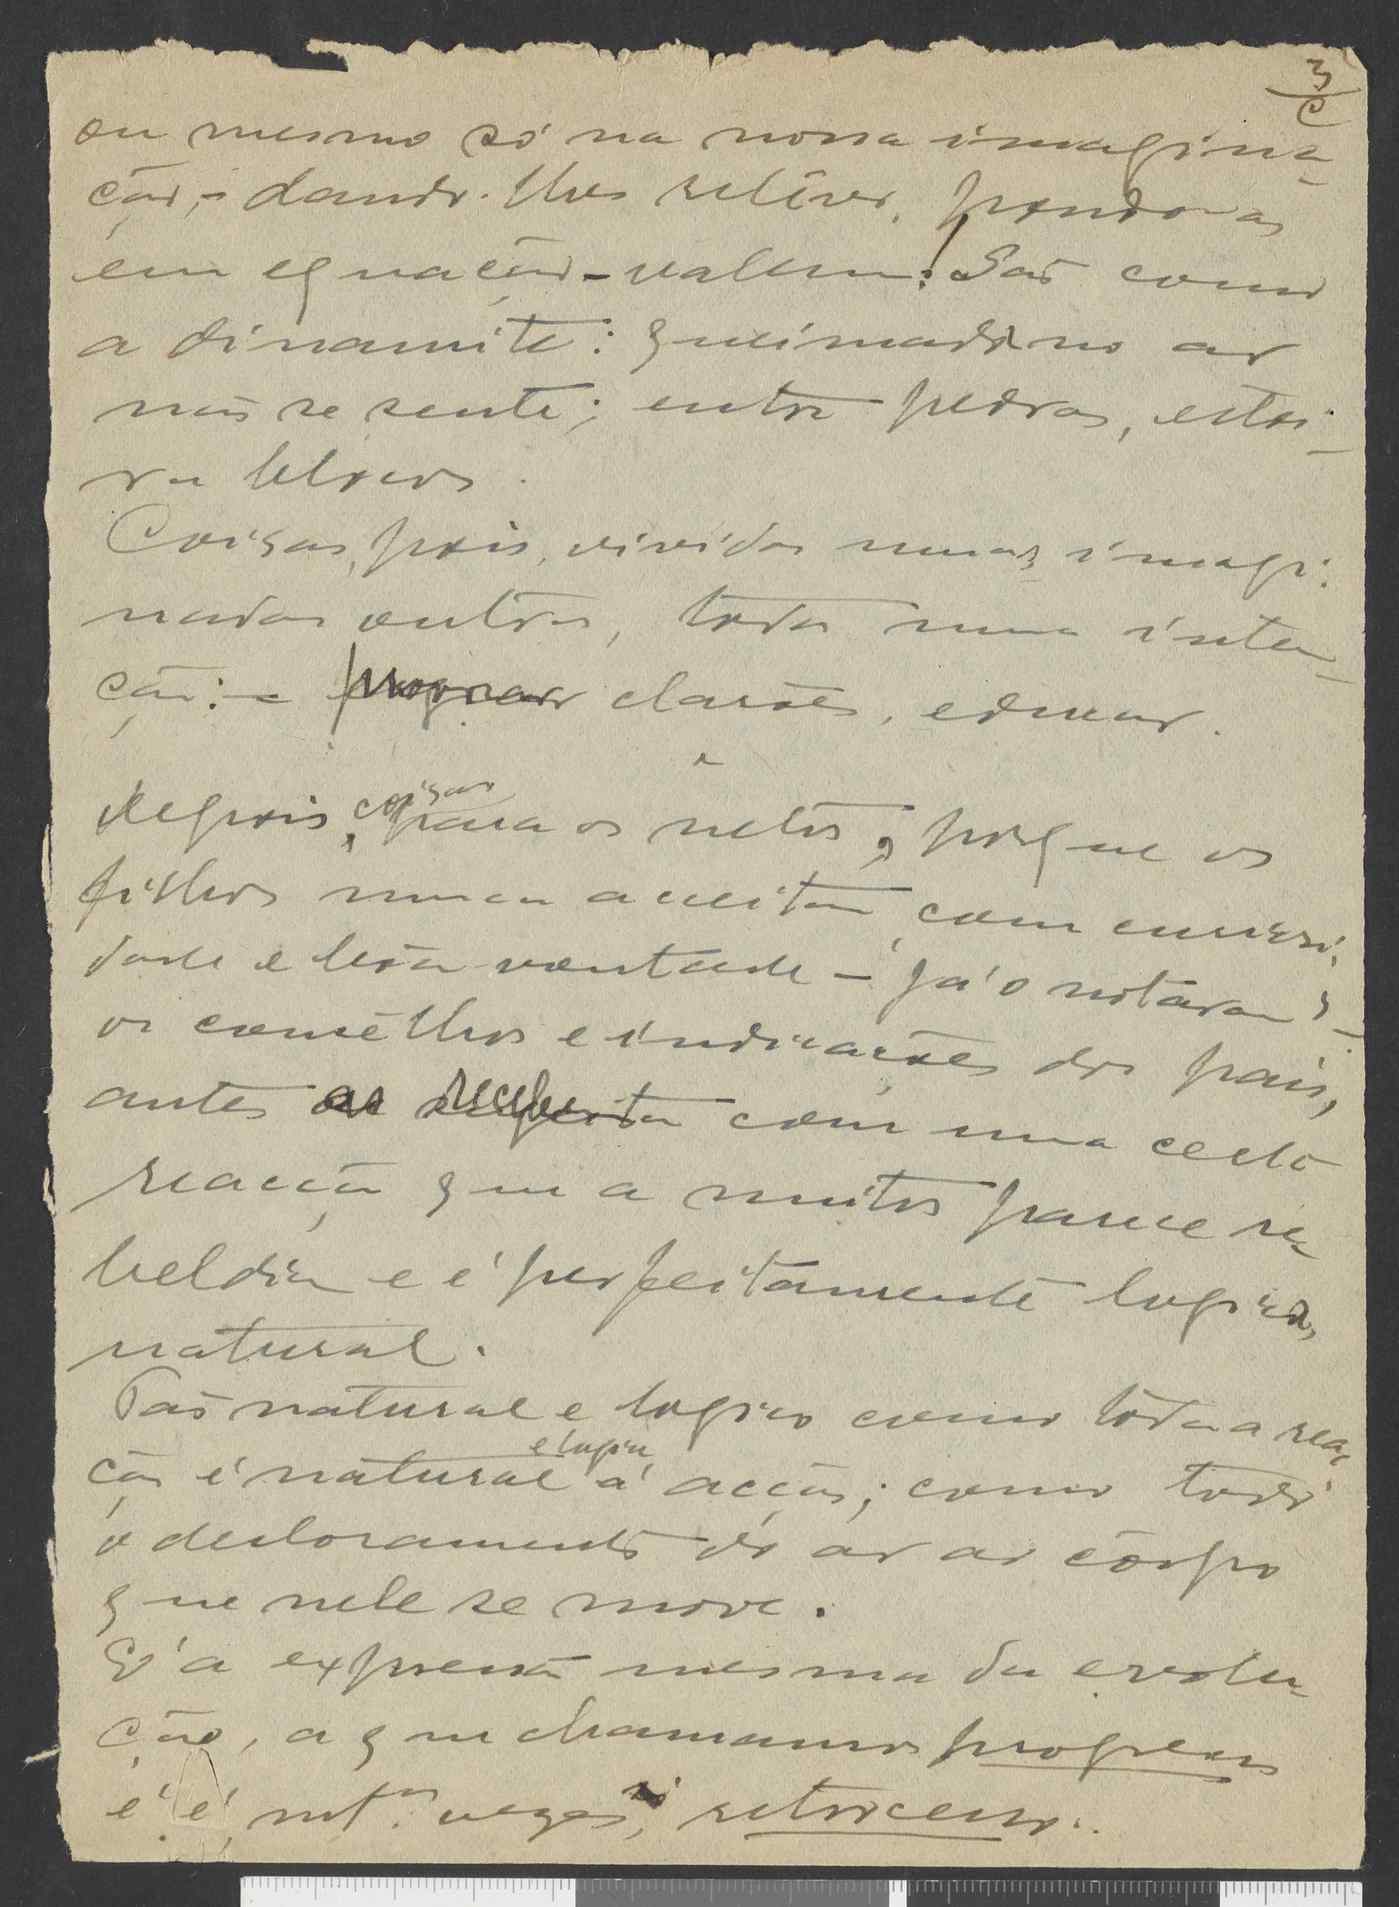 3
C
ou mesmo só na nossa imagina-
ção,- dando-lhes relêvo, pondo-as
em equação - valem! São como
a dinamite: queimado no ar
não se sente; entre pedras, estoi-
ra blocos.
Coisas, pois, vividas umas, imagi-
nadas outras, todas numa inten-
ção: - clarões, educar.
Depois, coisas para os netos, porque os
filhos nunca aceitam com curiosi-
dade e bôa vontade - já o notaram? -
os consêlhos e indicações dos pais,
antes com uma certa
reacção que a muitos parece re-
beldia e é perfeitamente logica,
natural.
Tão natural e logico como tôda a reac-
ção é natural e logica á acção; como todo
o deslocamento do ar ao côrpo
que nele se move.
E' a expressão mesma da evolu-
ção, a que chamamos progresso
e é, mt.as vezes, retrocesso.